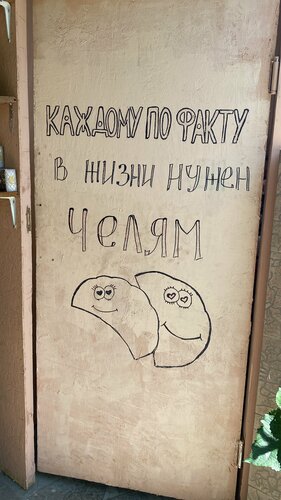 КАЖДОМУ ПО ФАКТУ
В ЖИЗНИ НУЖЕН
ЧЕЛЯМ